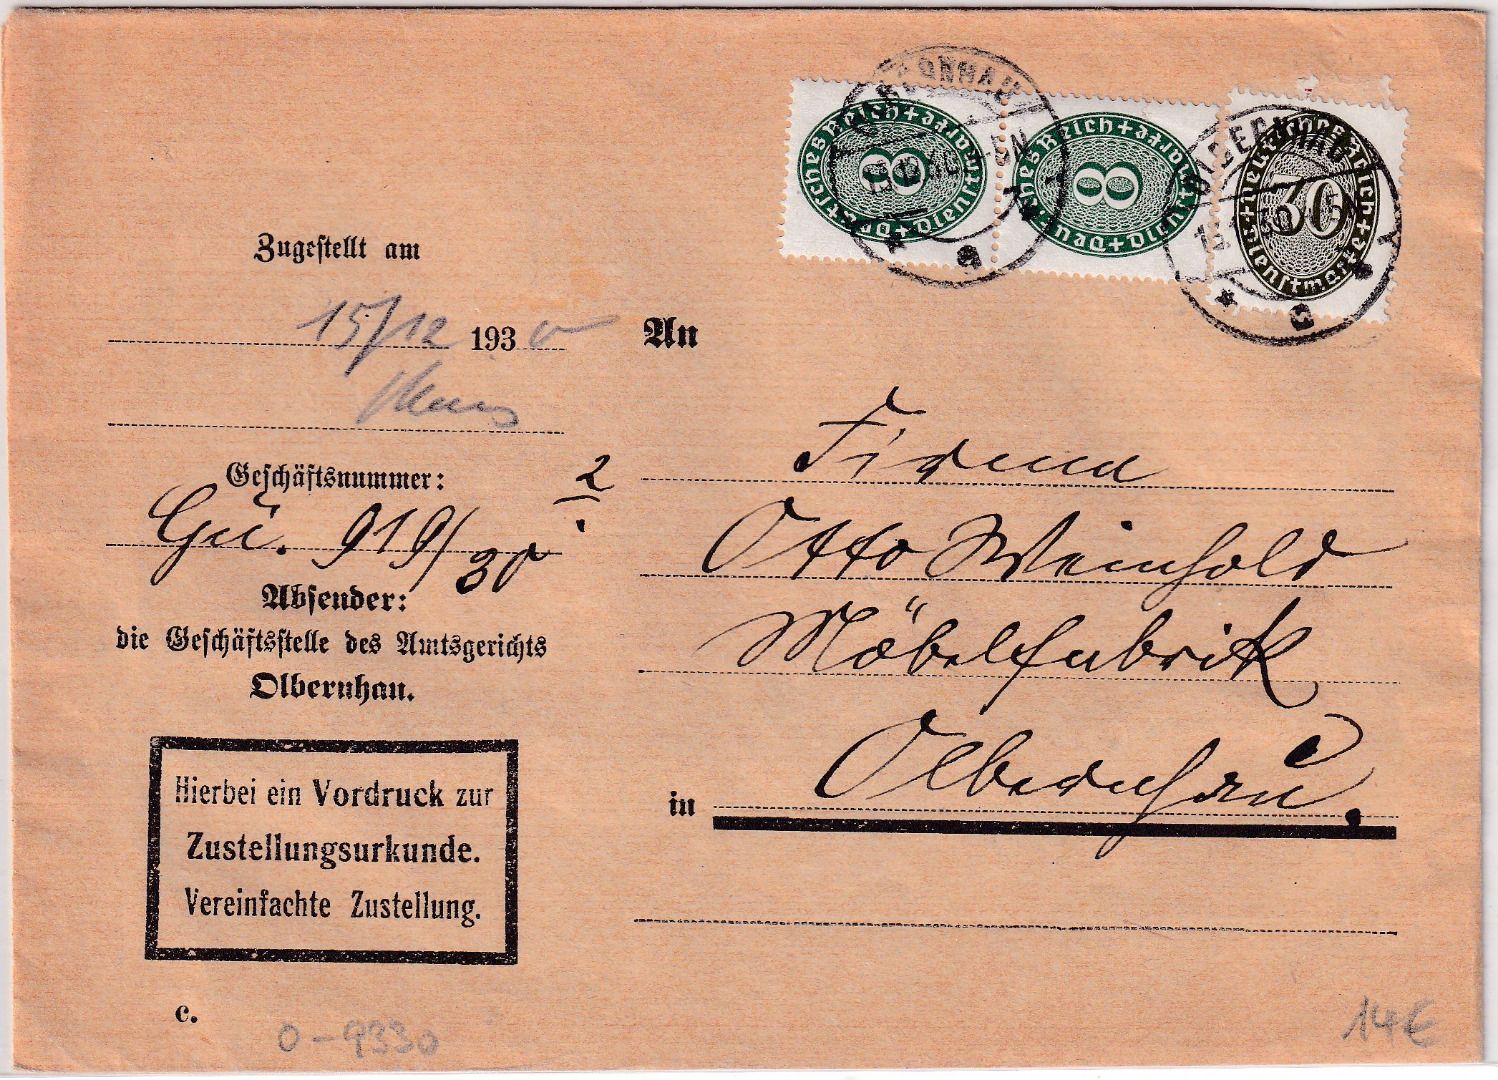 Zugestellt am
15/12 1930
Geschäftsnummer:
Gü. 919/30 2
Absender:
die Geschäftsstelle des Amtsgerichts
Olbernhau.
Hierbei ein Vordruck zur
Zustellungsurkunde.
Vereinfachte Zustellung.
c.
0-9330
Deutsches Reich + Dienstmarke
8
Deutsches Reich + Dienstmarke
8
Deutsches Reich + Dienstmarke
30
OLBERNHAU
a
OLBERNHAU
a
An
Firma
Otto Weinhold
Möbelfabrik
in Olbernhau.
14€